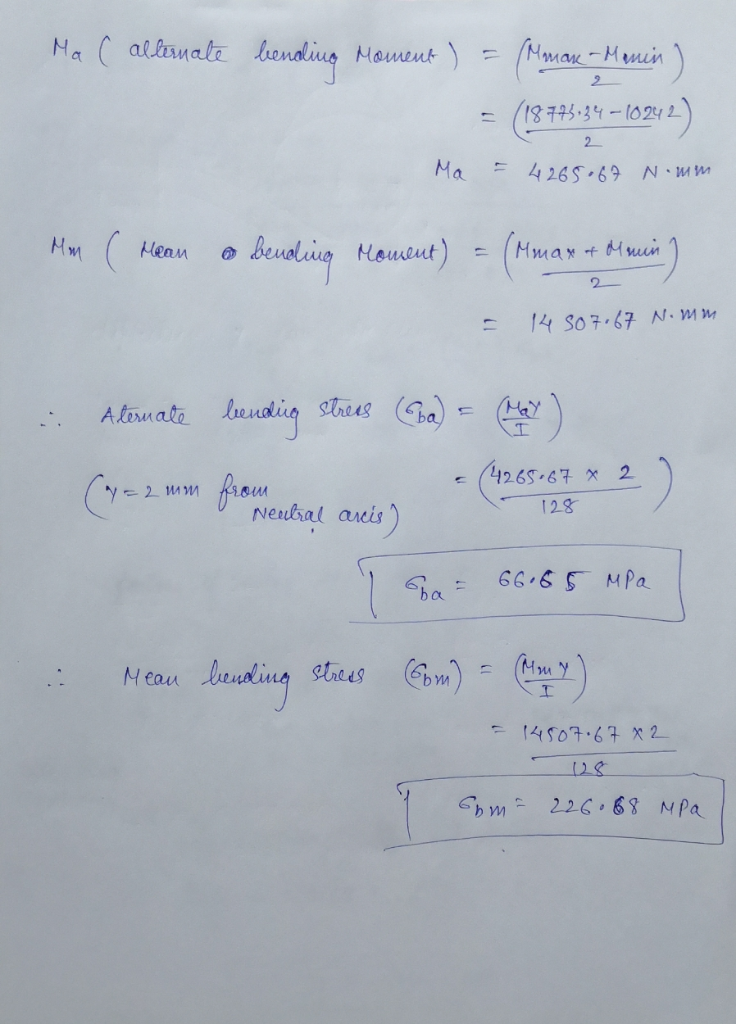 Ma ( alternate bending Moment ) = (Mmax - Mmin / 2)
= (18773.34 - 10242 / 2)
Ma = 4265.67 N.mm
Mm ( Mean bending Moment) = (Mmax + Mmin / 2)
= 14507.67 N.mm
∴ Aternate bending stress (σba) = (MaY / I)
(Y = 2 mm from Neutral axis) = (4265.67 x 2 / 128)
σba = 66.65 MPa
∴ Mean bending stress (σbm) = (Mm Y / I)
= 14507.67 x 2 / 128
σbm = 226.68 MPa